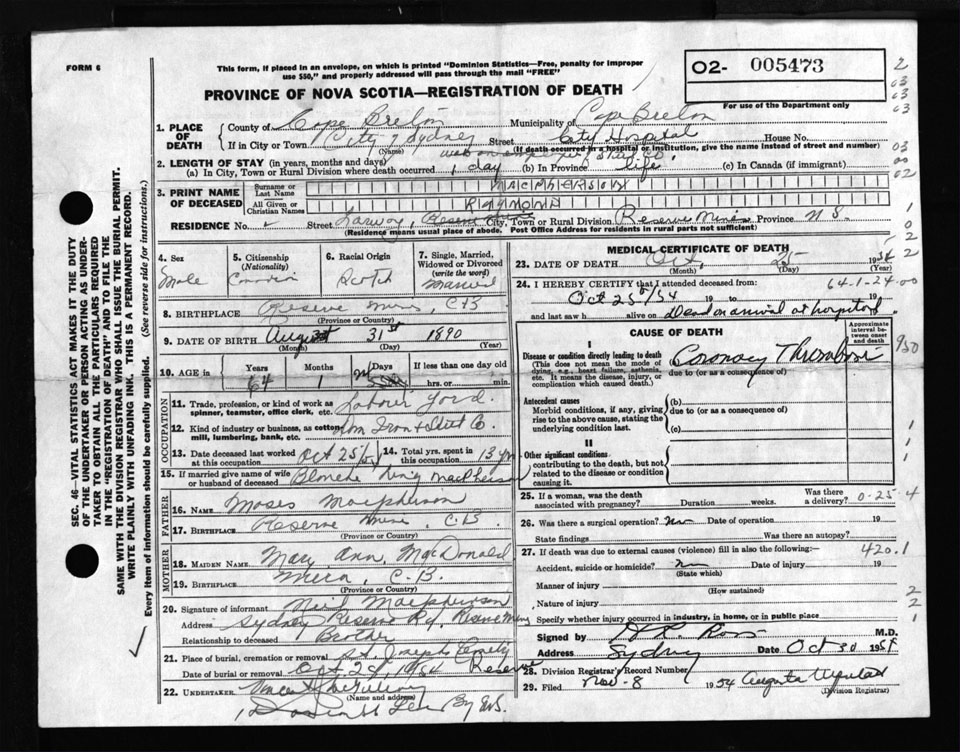 FORM 6
This form, if placed in an envelope, on which is printed "Dominion Statistics—Free, penalty for improper
use $50," and properly addressed will pass through the mail "FREE"
PROVINCE OF NOVA SCOTIA—REGISTRATION OF DEATH
O2- 005473
For use of the Department only
1. PLACE OF DEATH
County of Cape Breton Municipality of Cape Breton
If in City or Town City of Sydney Street City Hospital House No.
(Name) (If death occurred in a hospital or institution, give the name instead of street and number)
2. LENGTH OF STAY (in years, months and days)
(a) In City, Town or Rural Division where death occurred 1 day (b) In Province life (c) In Canada (if immigrant)
3. PRINT NAME OF DECEASED
Surname or Last Name MACPHERSON
All Given or Christian Names RAYMOND
RESIDENCE No. Street City, Town or Rural Division Reserve Mines Province N S.
(Residence means usual place of abode. Post Office Address for residents in rural parts not sufficient)
4. Sex Male
5. Citizenship (Nationality) Canadian
6. Racial Origin Scotch
7. Single, Married, Widowed or Divorced (write the word) Married
8. BIRTHPLACE Reserve Mines, C.B
(Province or Country)
9. DATE OF BIRTH August 31st 1890
(Month) (Day) (Year)
10. AGE in Years 64 Months 1 Days If less than one day old
hrs. or min.
OCCUPATION
11. Trade, profession, or kind of work as spinner, teamster, office clerk, etc. Labourer Yard
12. Kind of industry or business, as cotton mill, lumbering, bank, etc. Dom Iron & Steel Co.
13. Date deceased last worked at this occupation Oct 25/54
14. Total yrs. spent in this occupation 13 yrs
15. If married give name of wife or husband of deceased Blanche King MacPherson
FATHER
16. Name Moses Macpherson
17. Birthplace Reserve Mines, C.B
MOTHER
18. MAIDEN NAME Mary Ann MacDonald
19. BIRTHPLACE Mira, C.B.
(Province or Country)
20. Signature of informant Neil Macpherson
Address Sydney Reserve Rd, Reserve Mines
Relationship to deceased Brother
21. Place of burial, cremation or removal St. Josephs Cemetery Reserve
Date of burial or removal Oct 28 1954
22. UNDERTAKER
(Name and address)
MEDICAL CERTIFICATE OF DEATH
23. DATE OF DEATH Oct. 25 1954
(Month) (Day) (Year)
24. I HEREBY CERTIFY that I attended deceased from: 64-1-24-00
Oct 25/54 19 to 19
and last saw h alive on Dead on arrival at hospital
CAUSE OF DEATH
Approximate interval between onset and death
I
Disease or condition directly leading to death
(This does not mean the mode of dying, e.g., heart failure, asthenia, etc. It means the disease, injury, or complication which caused death.)
Coronary Thrombosis
due to (or as a consequence of)
Antecedent causes
Morbid conditions, if any, giving rise to the above cause, stating the underlying condition last.
(b)
due to (or as a consequence of)
(c)
II
Other significant conditions
contributing to the death, but not related to the disease or condition causing it.
25. If a woman, was the death associated with pregnancy? Duration weeks. Was there a delivery? 0-25-4
26. Was there a surgical operation? No Date of operation 19
State findings Was there an autopsy?
27. If death was due to external causes (violence) fill in also the following:— 420.1
Accident, suicide or homicide? No Date of injury 19
(State which)
Manner of injury
(How sustained)
Nature of injury
Specify whether injury occurred in industry, in home, or in public place
Signed by Ross M.D.
Address Sydney Date Oct 30 1954
28. Division Registrar's Record Number
29. Filed Nov-8 1954 Augusta
(Division Registrar)
SEC. 46—VITAL STATISTICS ACT MAKES IT THE DUTY
OF THE UNDERTAKER OR PERSON ACTING AS UNDERTAKER
TO OBTAIN ALL THE PARTICULARS REQUIRED
IN THE "REGISTRATION OF DEATH" AND TO FILE THE
SAME WITH THE DIVISION REGISTRAR WHO SHALL ISSUE THE BURIAL PERMIT.
WRITE PLAINLY WITH UNFADING INK. THIS IS A PERMANENT RECORD.
Every item of information should be carefully supplied. (See reverse side for instructions.)